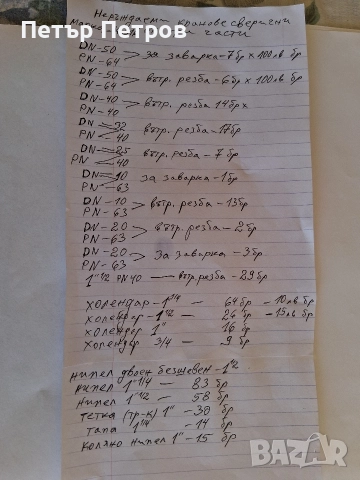 Неръждаеми кранове сверични
части
DN-50
PN-64 > за заварка-7бр x 100лв бр
DN-50
PN-64 > вътр. резба-6бр x 100лв бр
DN-40
PN-40 > вътр. резба 14брx
DN-32
PN 40 вътр. резба-17бр
DN-25
PN 40 вътр. резба-7бр
DN-10
PN-63 за заварка-1бр
DN-10
PN-63 > вътр. резба-13бр
DN-20
PN-63 > вътр. резба-2бр
DN-20
PN-63 > за заварка-3бр
1"1/2 PN40 — вътр. резба-29бр
холендар-1"1/4 — 64бр -10лв бр
холендер-1"1/2 — 26бр -15лв бр
холендер 1" 16бр
холендер 3/4 — 9бр
нипел двоен безшевен-1"1/2
нипел 1"1/4 — 83бр
нипел 1"1/2 — 58бр
тетка (тр-к) 1" -30бр
тапа 1"1/4 — 14бр
коляно нипел 1"-15бр
bazar.bg